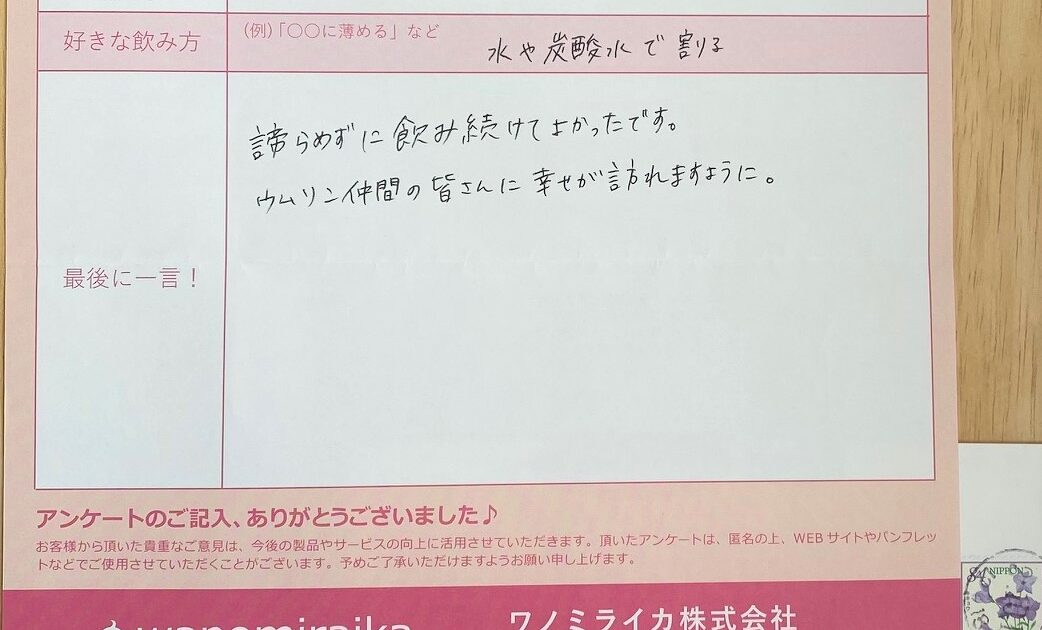 好きな飲み方
(例)「○○に薄める」など
水や炭酸水で割る
諦らめずに飲み続けてよかったです。
ウムリン仲間の皆さんに幸せが訪れますように。
最後に一言！
アンケートのご記入、ありがとうございました♪
お客様から頂いた貴重なご意見は、今後の製品やサービスの向上に活用させていただきます。頂いたアンケートは、匿名の上、WEBサイトやパンフレッ
トなどでご使用させていただくことがございます。予めご了承いただけますようお願い申し上げます。
wanomiraika
ワノミライカ株式会社
NIPPON